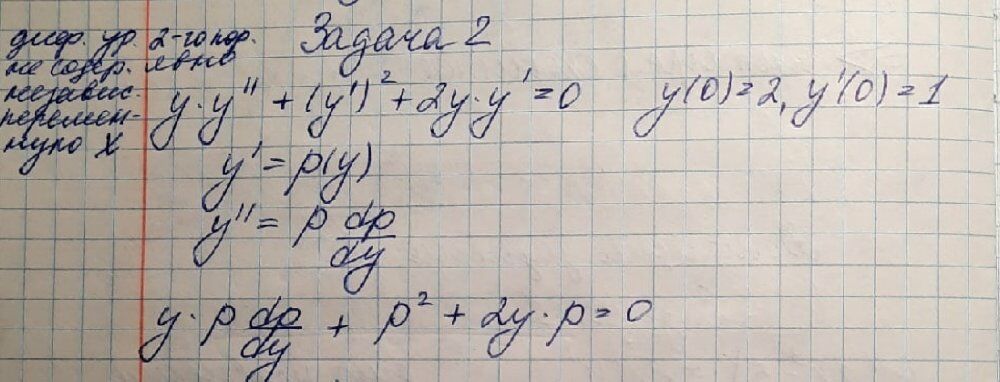 Задача 2
диф. ур. 2-го пор.
не содер. явно
независ.
перемен-
ную x
y·y'' + (y')² + 2y·y' = 0    y(0)=2, y'(0)=1
y' = p(y)
y'' = p dp/dy
y·p dp/dy + p² + 2y·p = 0